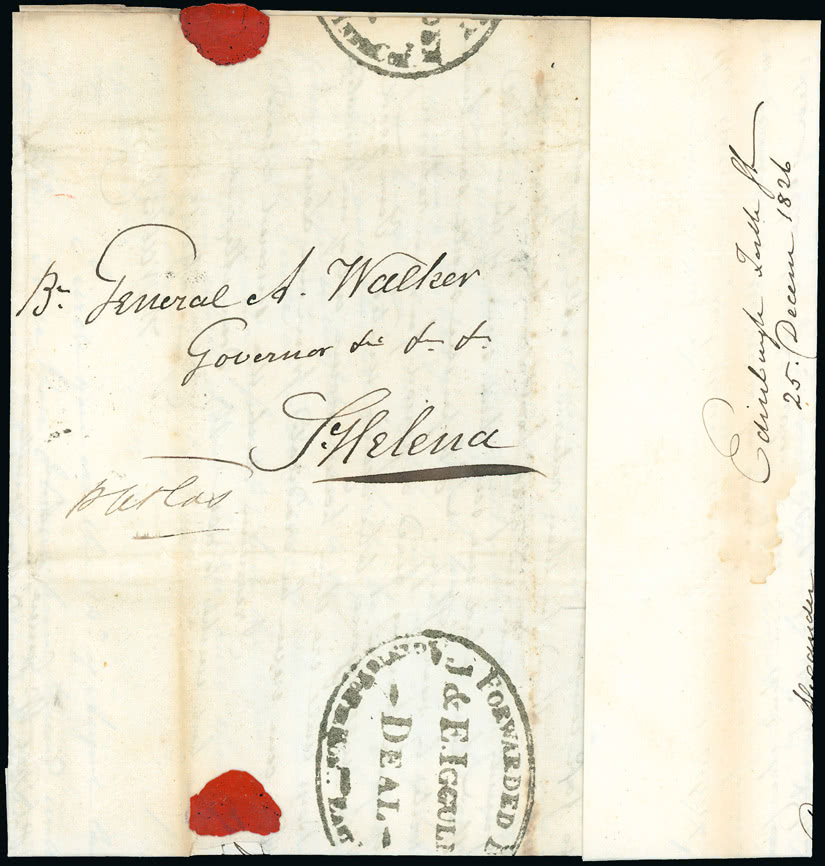 Br. General A. Walker
Governor &c &c &c
St. Helena
p Atlas
FORWARDED
J & E. IGGULD
DEAL
Edinburgh Forth St
25. Decem 1826
Alexander